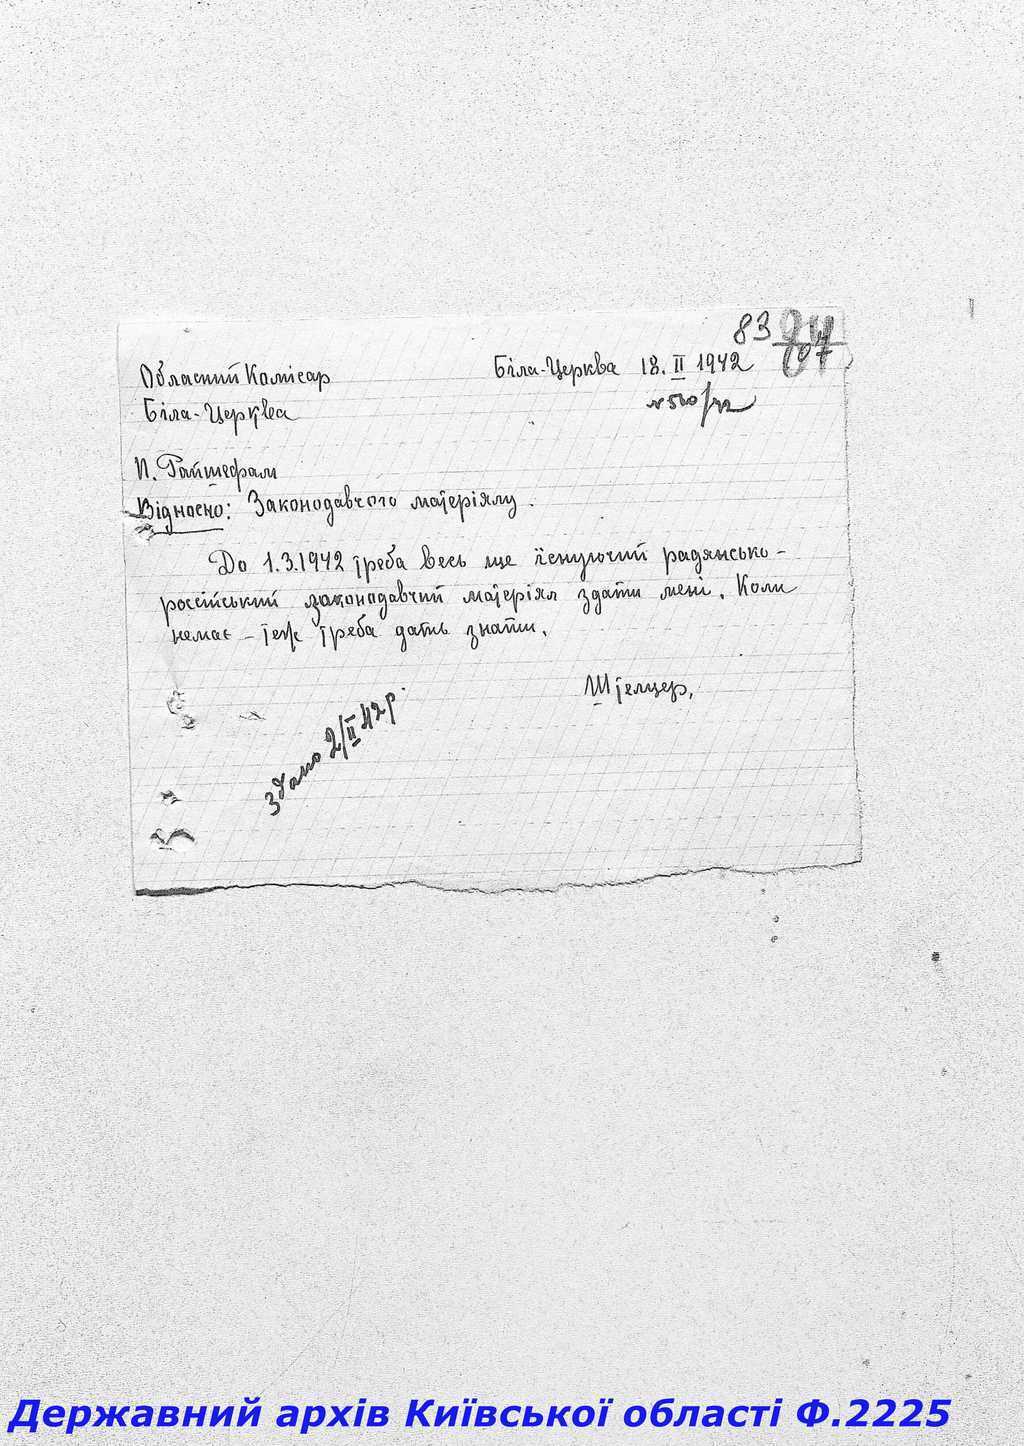 83
Обласний Комісар
Біла-Церква 18.II 1942
Біла-Церква
П. Райтефам
Відносно: Законодавчого матеріялу.
До 1.3.1942 треба весь ще існуючий радянсько-
російський законодавчий матеріял здати мені. Коли
немає – теж треба дать знати.
Штелцер.
Здано 2/II 42 р.
Державний архів Київської області Ф.2225